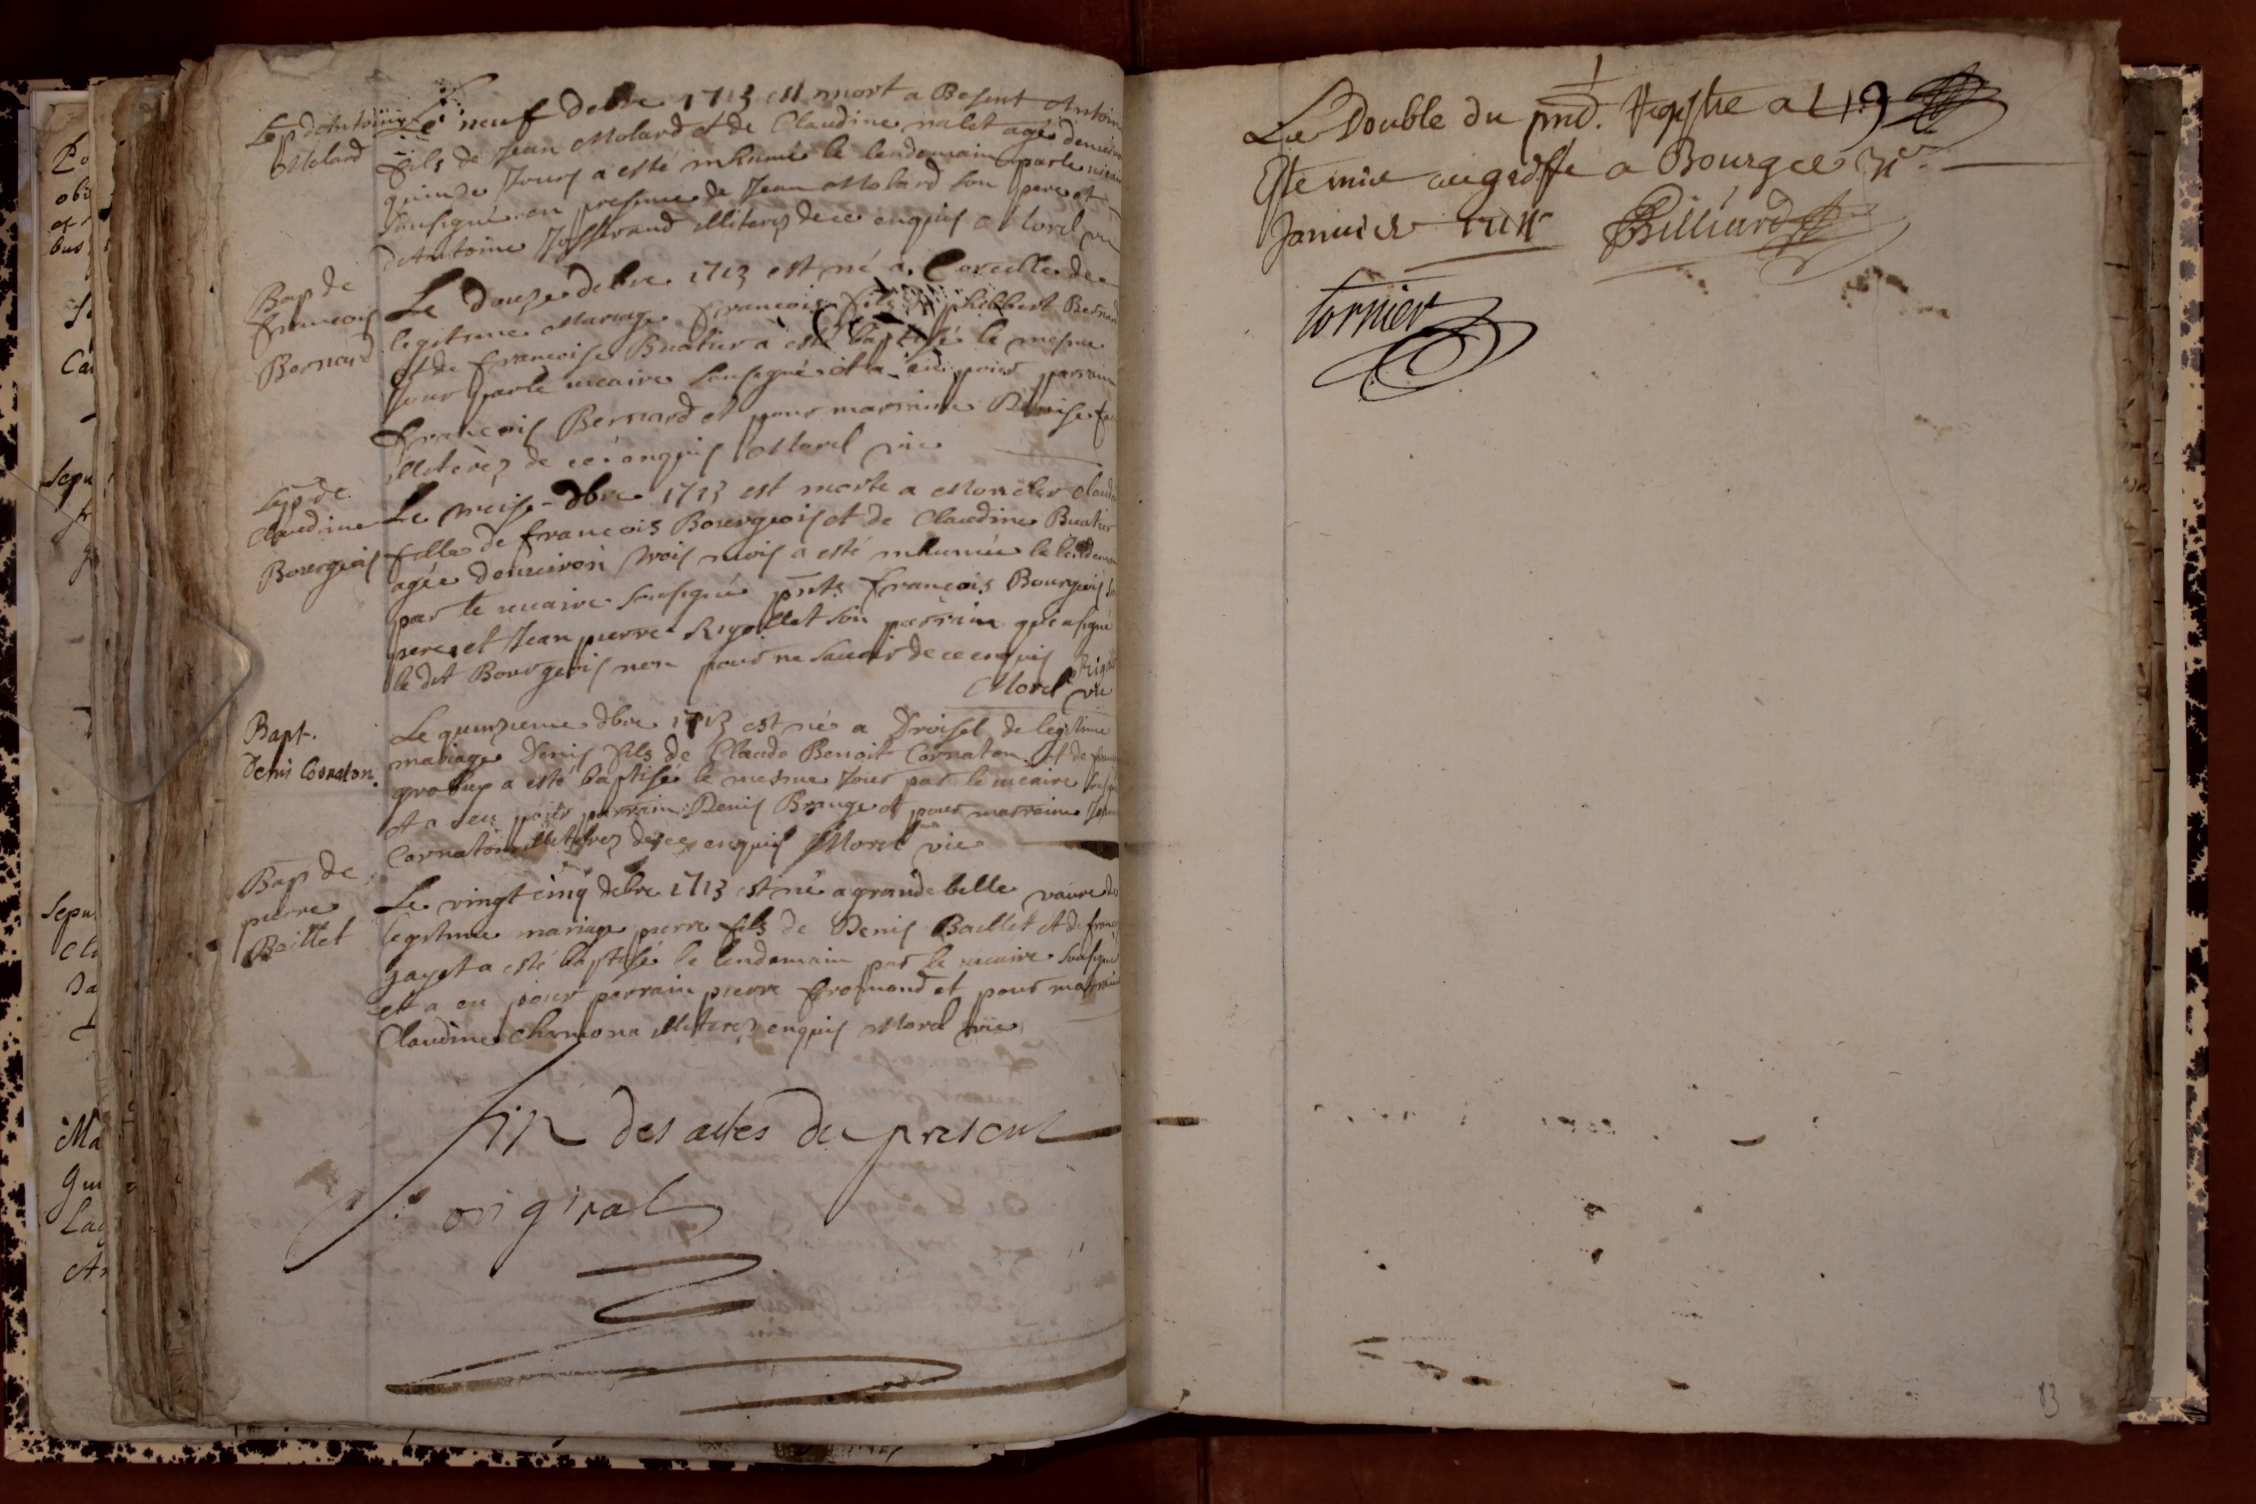 Sep d'Antoine
Molard
Le neuf debre 1713 est mort a Besent Antoine
fils de Jean Molard et de Claudine nalet agé denviron
quinze Jours a esté inhumé le lendemain par le vicaire
sousigné en presence de Jean Molard son pere et
d'Antoine Josserand illiterez de ce enquis Morel vic
Bap de
francois
Bernard
Le douze debre 1713 est né a Corcelle de
legitime Mariage francois fils de philibert Bernard
et de francoise Buatier a esté baptisé le mesme
Jour par le vicaire sousigné et a eu pour parrain
francois Bernard et pour marraine Denise
illiterez de ce enquis Morel vic
Sep de
Claudine
Bourgeois
Le treise dbre 1713 est morte a Claudine
fille de francois Bourgeois et de Claudine Buatier
agée denviron trois mois a esté inhumée le lendemain
par le vicaire sousigné pnts francois Bourgeois son
pere et Jean pierre Rigollet son parrain qui a signé
le dit Bourgeois non pour ne savoir de ce enquis
Morel vic
Bapt.
Denis Cornaton.
Le quinzieme dbre 1713 est né a Droisel de legitime
mariage Denis fils de Claude Benoit Cornaton et de
a esté baptisé le mesme Jour par le vicaire
et a eu pour parrain Denis Brange et pour marraine
Cornaton illiterez de ce enquis Morel vic
Bap de
pierre
Baillet
Le vingt cinq debre 1713 est né a grande belle vavre de
legitime mariage pierre fils de Denis Baillet et de
gayet a esté baptisé le lendemain par le vicaire sousigné
et a eu pour parrain pierre fromond et pour marraine
Claudine Chamona illiterez enquis Morel vic
fin des actes du present
original
Le Double du pnt. Registre a
Este mis au greffe a Bourg ce
Janvier Billiard
Cornier